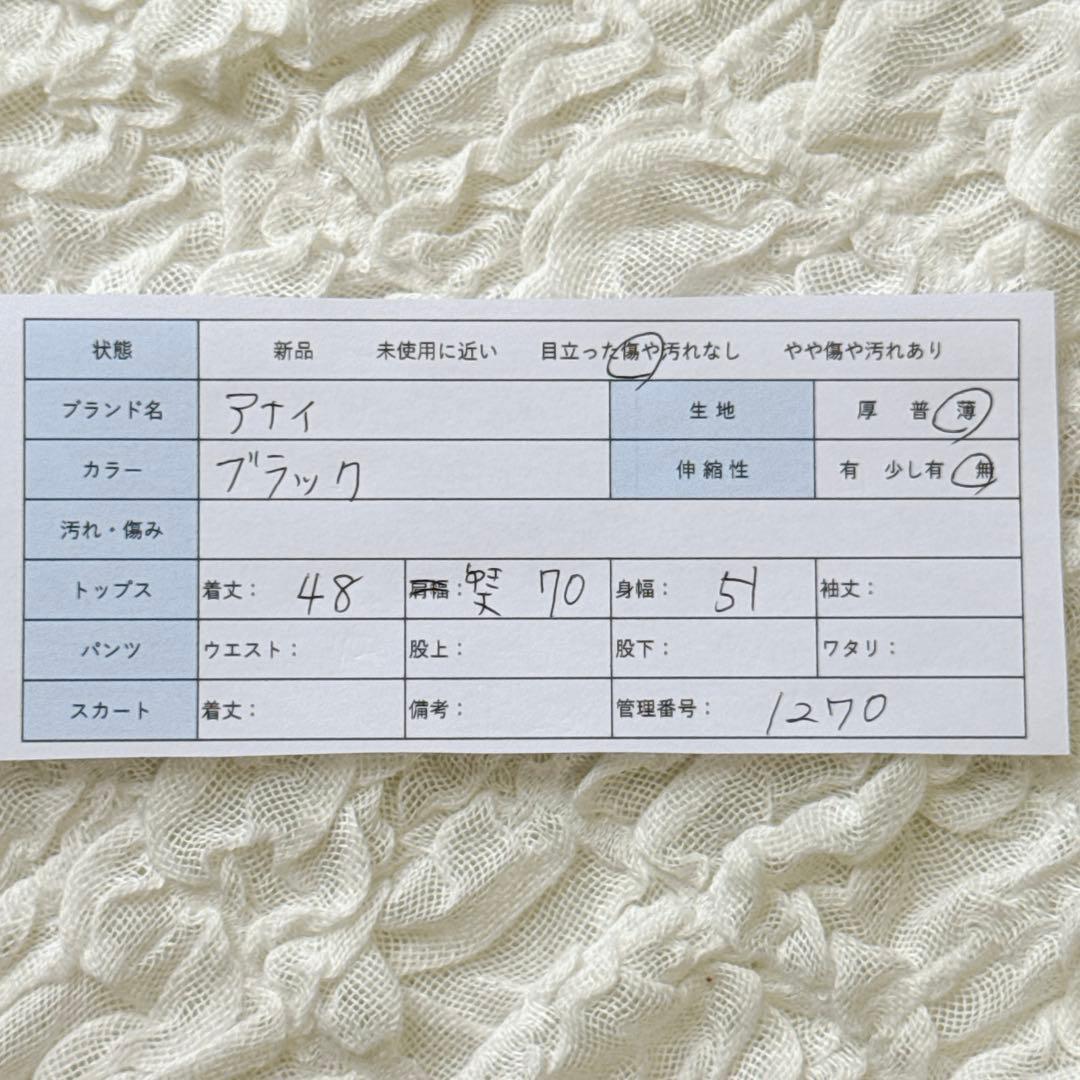 状態 新品 未使用に近い 目立った傷や汚れなし やや傷や汚れあり
ブランド名 アナイ 生地 厚 普 薄
カラー ブラック 伸縮性 有 少し有 無
汚れ・傷み
トップス 着丈： 48 肩幅：ゆき丈 70 身幅： 51 袖丈：
パンツ ウエスト： 股上： 股下： ワタリ：
スカート 着丈： 備考： 管理番号： 1270